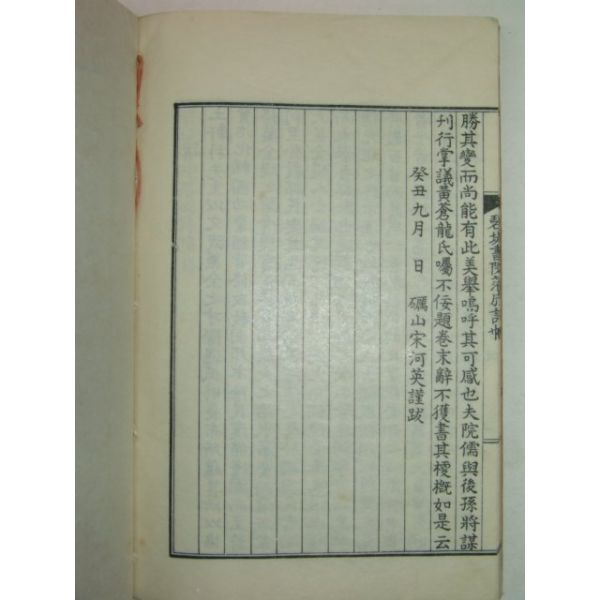 碧城書院落成詩帖
勝其變而尚能有此美舉嗚呼其可感也夫院儒與後孫將謀
刊行掌議黃蒼龍氏囑不佞題卷末辭不獲書其梗槪如是云
癸丑九月 日 礪山宋河英謹跋